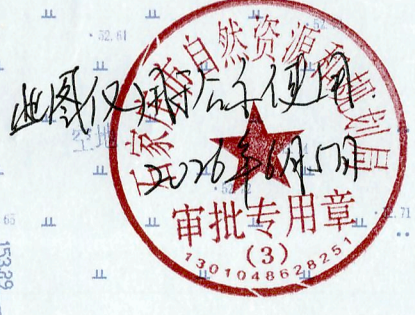 52.61
石家庄市自然资源和规划局
此图仅用于公示使用
空地
2026年6月5日
审批专用章
(3)
1301048628251
.71
65
153.39